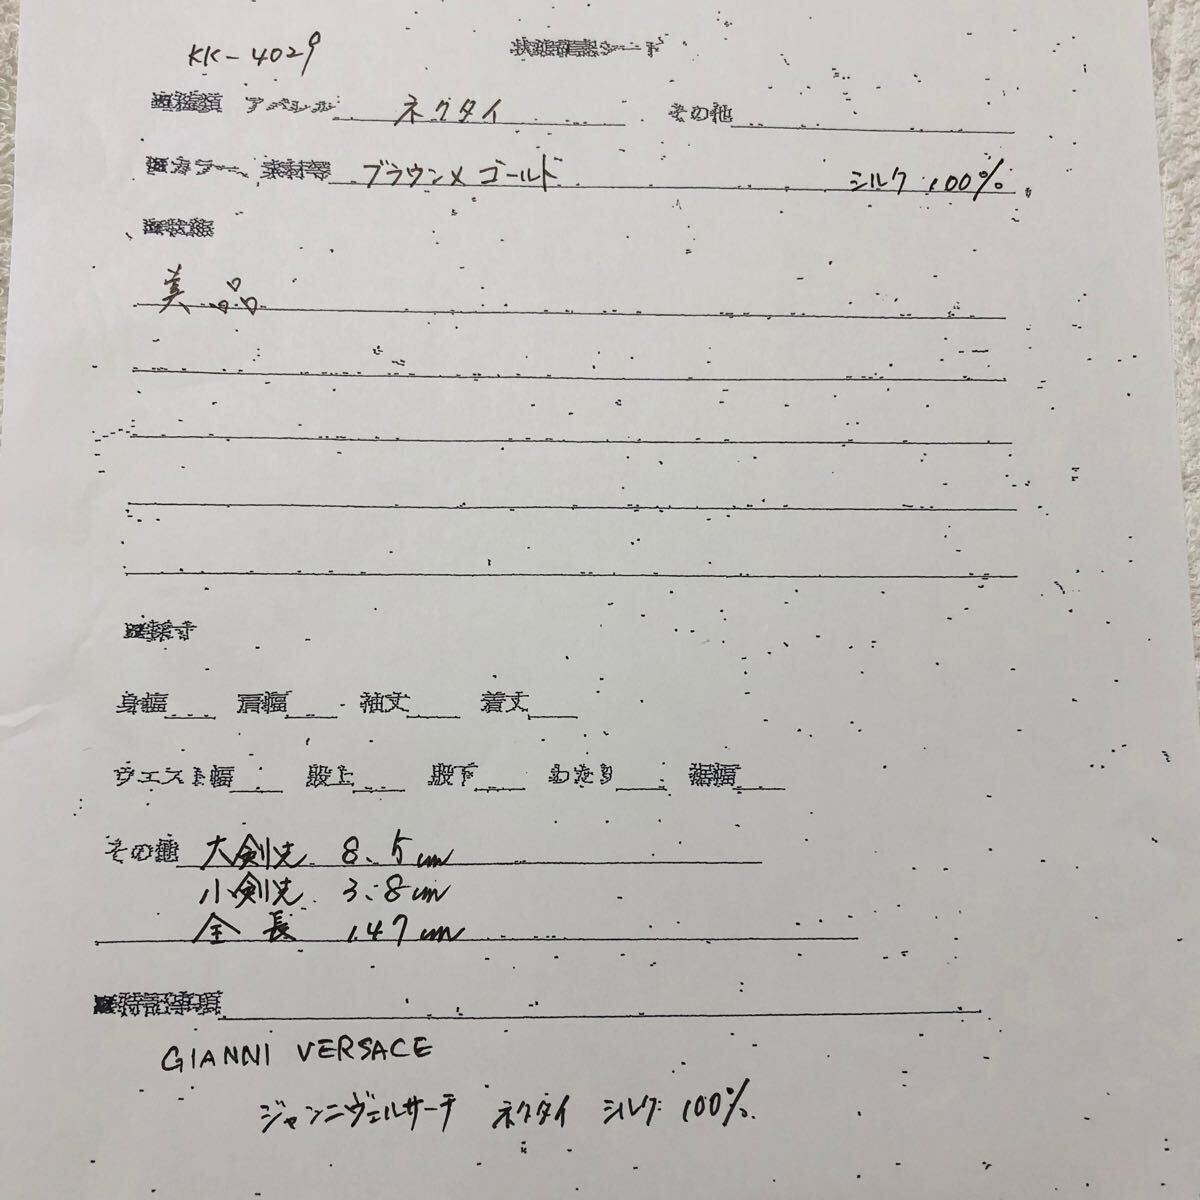 KK-4029 状態確認シート
■種類 アパレル ネクタイ その他
■カラー、素材等 ブラウン×ゴールド シルク 100%
■状態
美品
■採寸
身幅 肩幅 袖丈 着丈
ウエスト幅 股上 股下 わたり 裾幅
その他 大剣先 8.5cm
小剣先 3.8cm
全長 147cm
■特記事項
GIANNI VERSACE
ジャンニヴェルサーチ ネクタイ シルク 100%